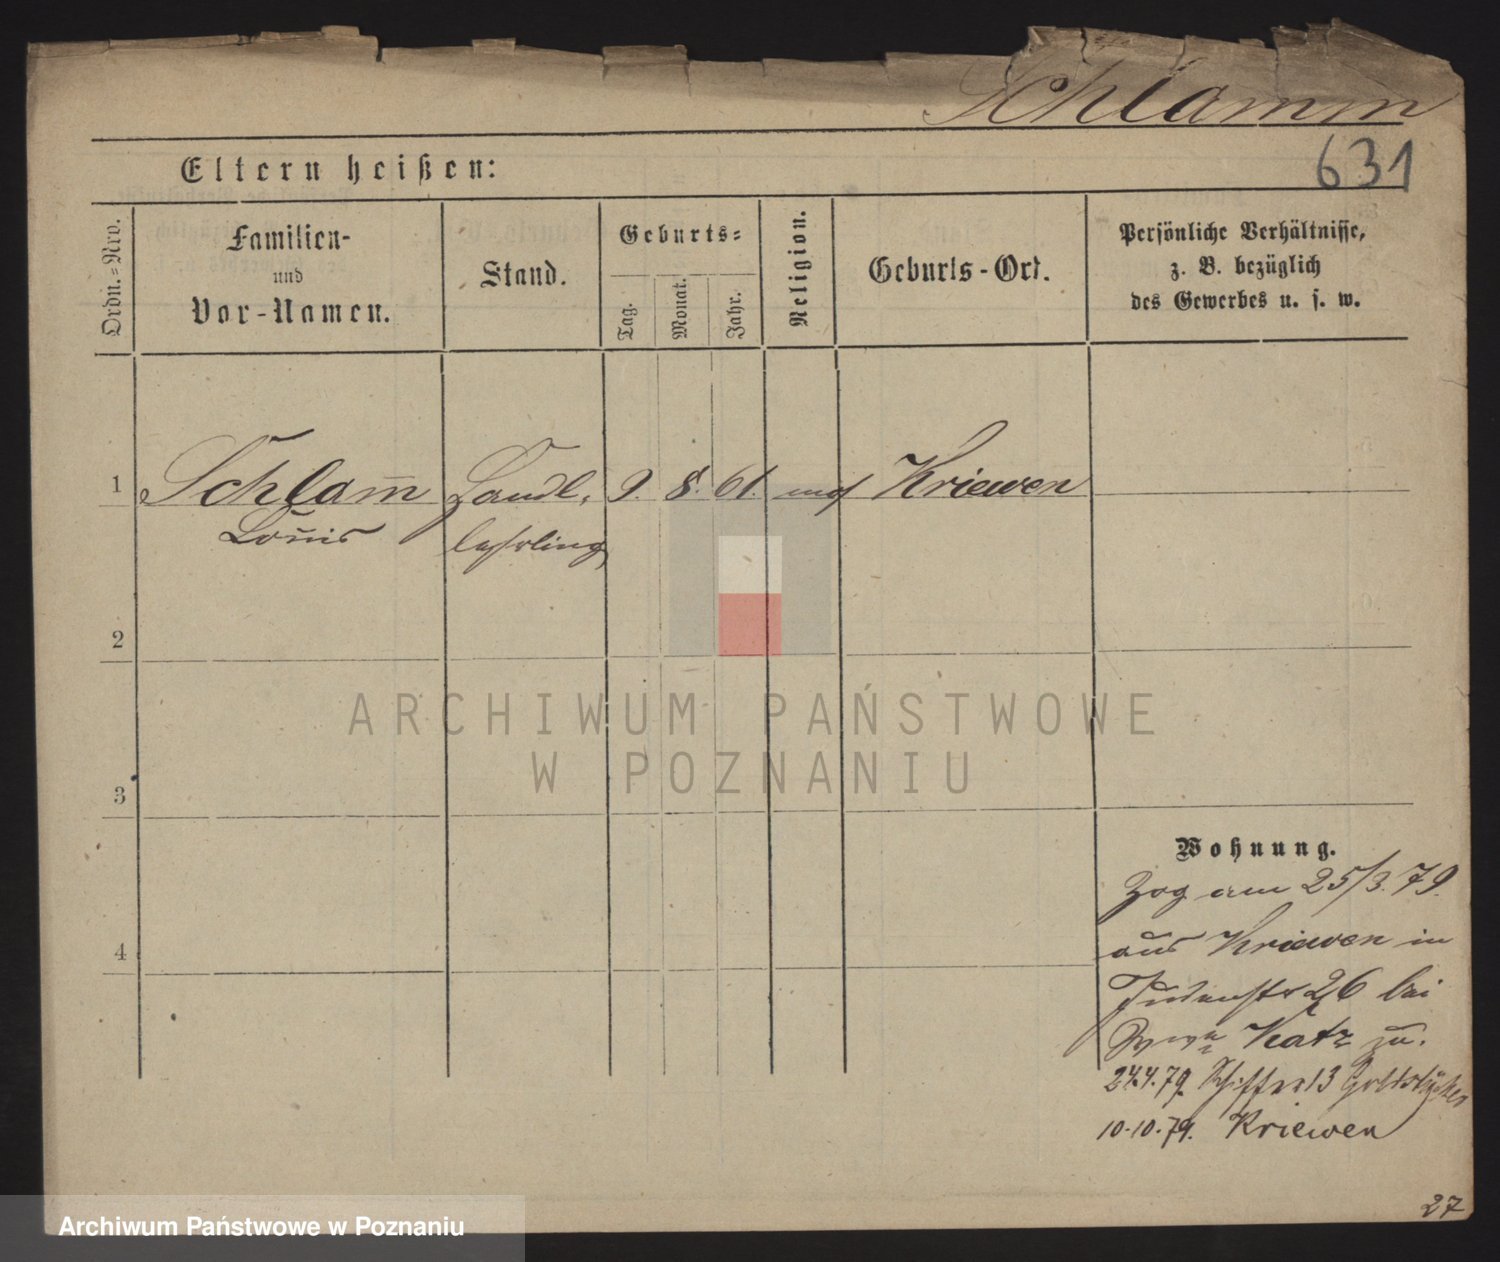 Schlamm
631
Eltern heißen:
Ordn.=Nro.
Familien-
und
Vor-Namen.
Stand.
Geburts=
Tag.
Monat.
Jahr.
Religion.
Geburts-Ort.
Persönliche Verhältnisse,
z. B. bezüglich
des Gewerbes u. s. w.
1 Schlam̅ Handl. 9. 8. 61. mos Kriewen
Louis lehrling
2
3
4
Wohnung.
Zog am 25/3. 79.
aus Kriewen in
Judenstr 26 bei
Katz zu.
24.4.79. Schifferstr 13
10.10.79. Kriewen
27
ARCHIWUM PAŃSTWOWE
W POZNANIU
Archiwum Państwowe w Poznaniu